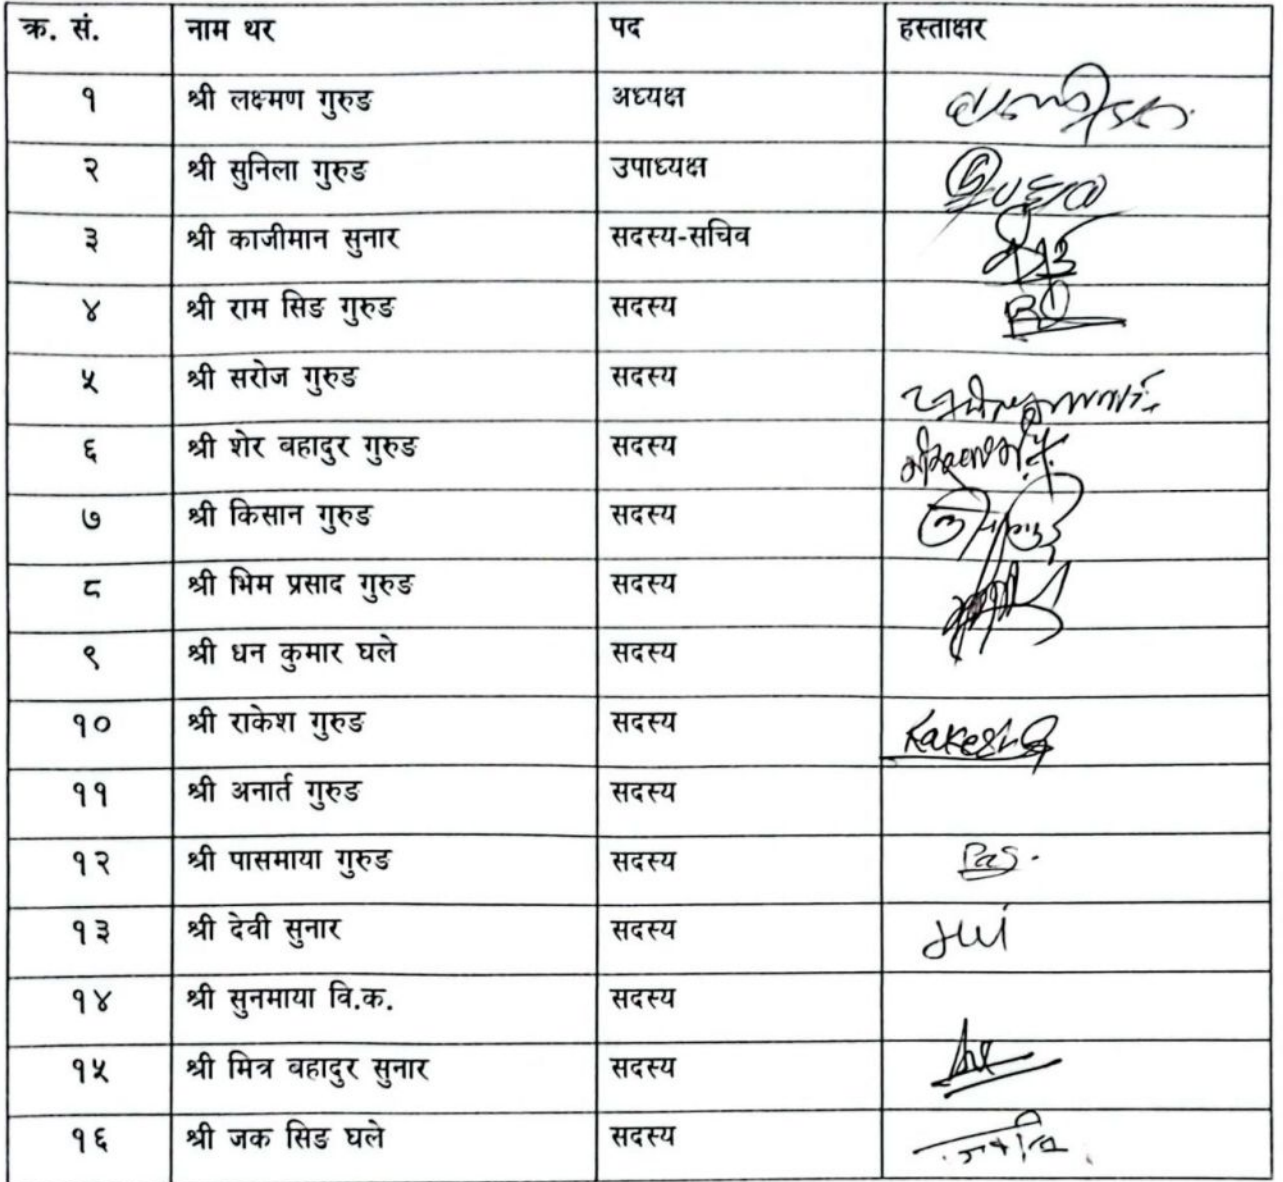 क्र. सं. नाम थर पद हस्ताक्षर
१ श्री लक्ष्मण गुरुङ अध्यक्ष
२ श्री सुनिला गुरुङ उपाध्यक्ष
३ श्री काजीमान सुनार सदस्य-सचिव
४ श्री राम सिङ गुरुङ सदस्य
५ श्री सरोज गुरुङ सदस्य
६ श्री शेर बहादुर गुरुङ सदस्य
७ श्री किसान गुरुङ सदस्य
८ श्री भिम प्रसाद गुरुङ सदस्य
९ श्री धन कुमार घले सदस्य
१० श्री राकेश गुरुङ सदस्य
११ श्री अनार्त गुरुङ सदस्य
१२ श्री पासमाया गुरुङ सदस्य Pas.
१३ श्री देवी सुनार सदस्य
१४ श्री सुनमाया वि.क. सदस्य
१५ श्री मित्र बहादुर सुनार सदस्य
१६ श्री जक सिङ घले सदस्य